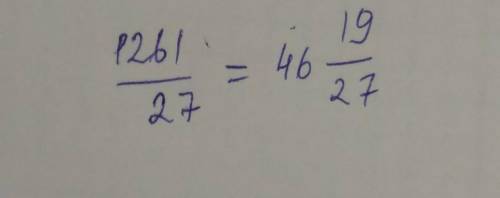 1261/27 = 46 19/27